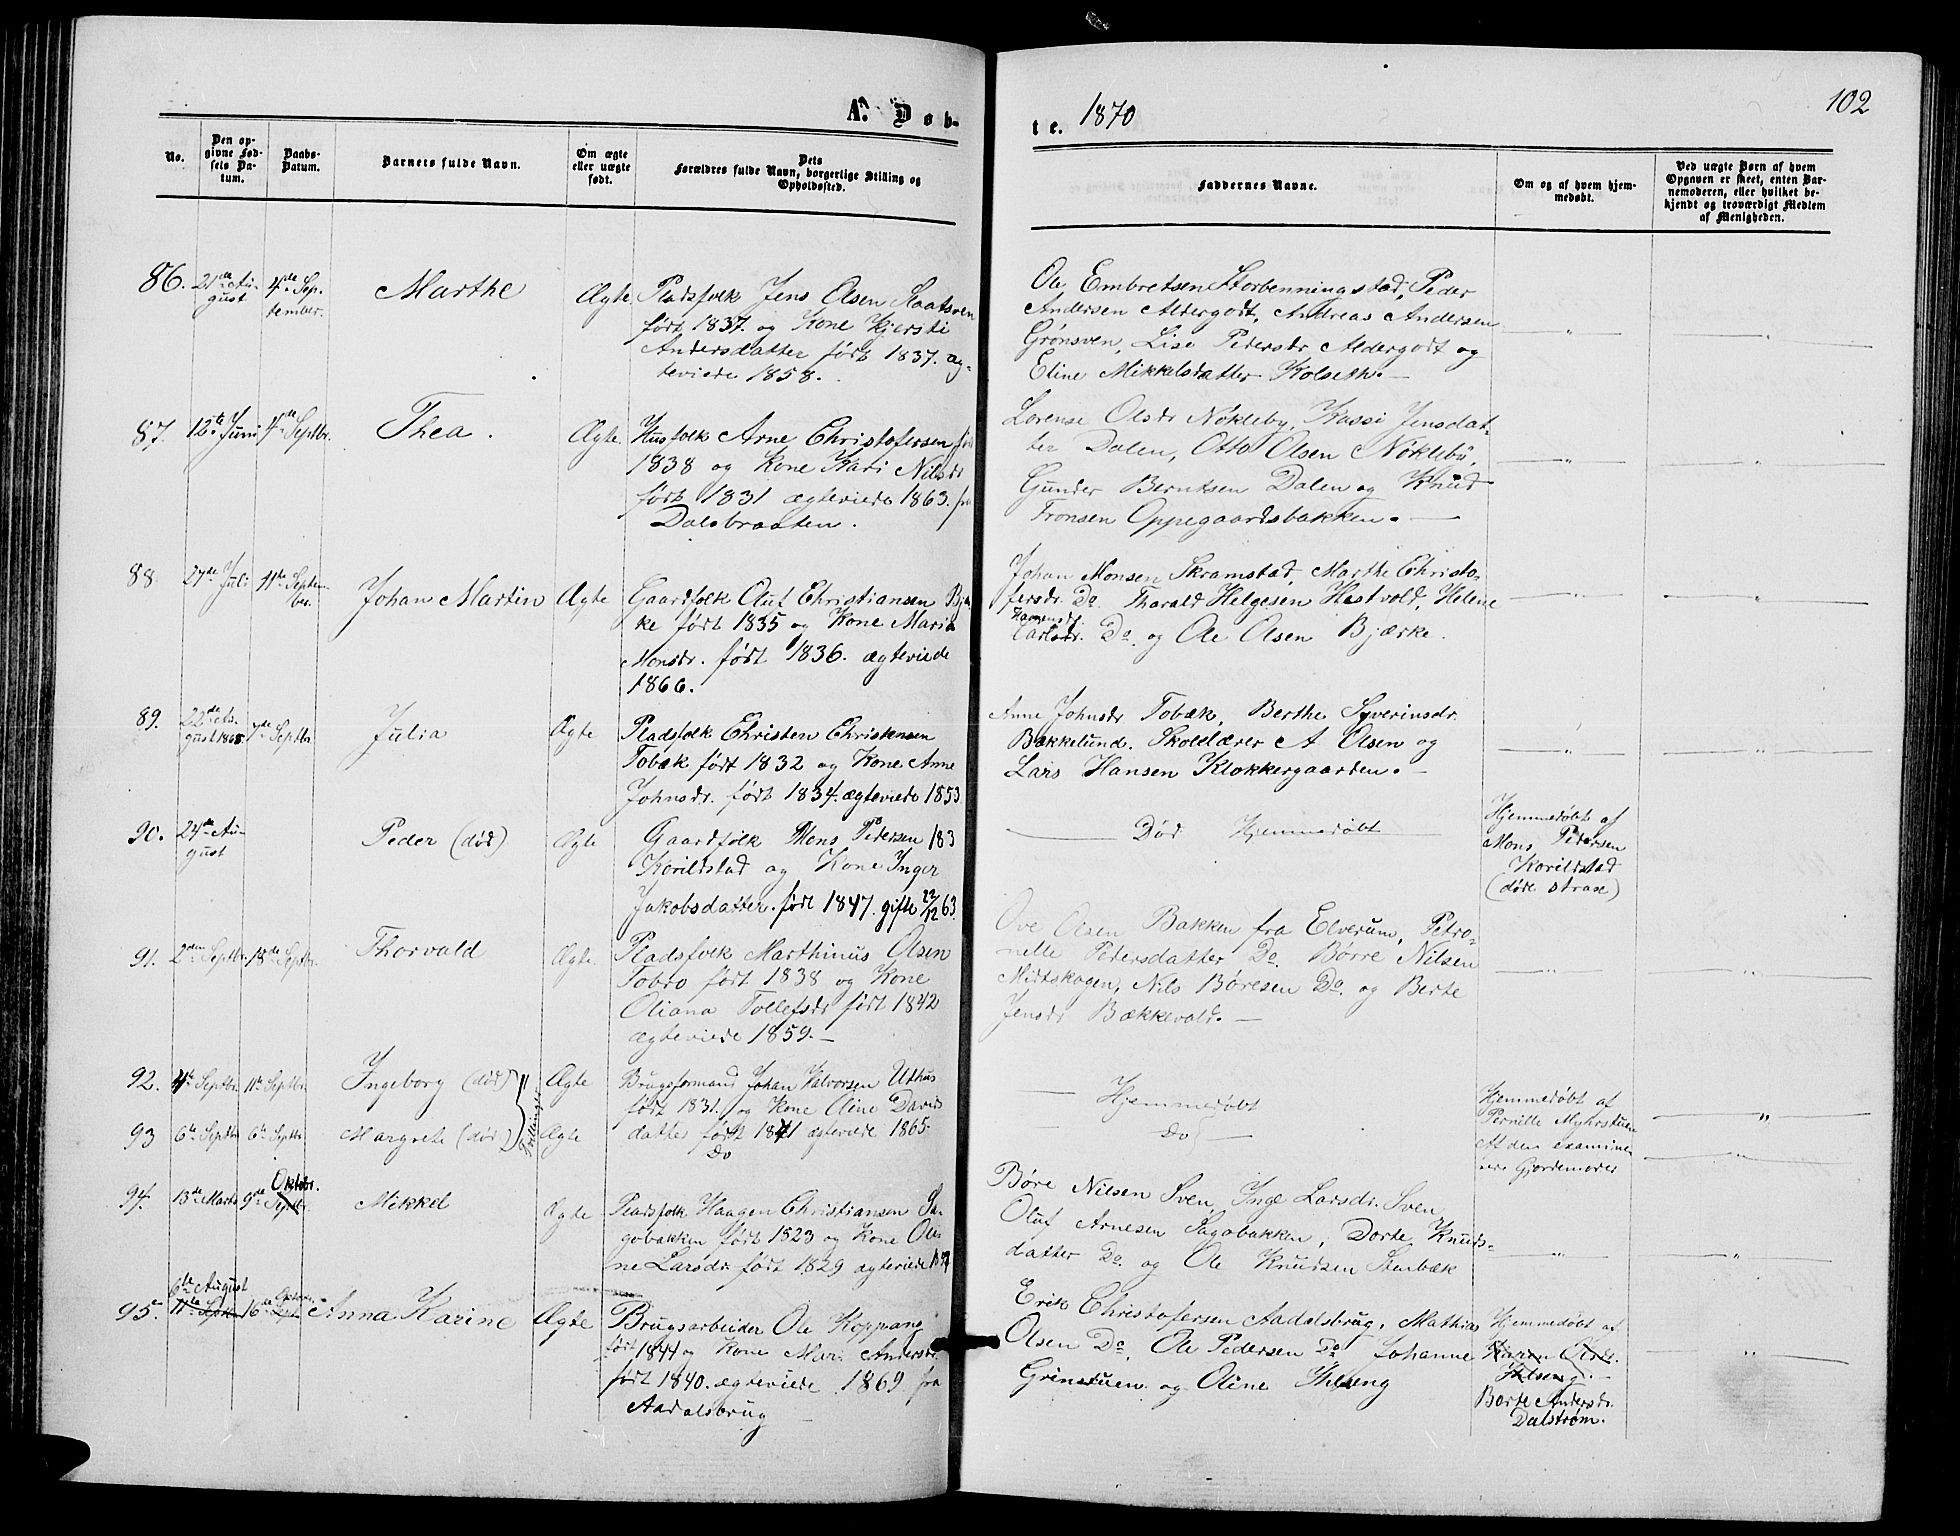 A. Døb-
te. 1870
102
No.
Den op-
givne Fød-
sels Da-
tum.
Daabs-
Datum.
Barnets fulde Navn.
Om ægte
eller uægte
født.
Dets
Forældres fulde Navn, borgerlige Stilling og
Opholdssted.
Faddernes Navne.
Om og af hvem hjem-
medøbt.
Ved uægte Børn af hvem
Opgaven er skeet, enten Bar-
nemoderen, eller hvilket be-
kjendt og troværdigt Medlem
af Menigheden.
86.
21de Au-
gust
4de Sep-
tember.
Marthe
Ægte
Pladsfolk Jens Olsen Slaatsven
født 1837. og Kone Kjersti
Andersdatter født 1837. æg-
teviede 1858.
Ole Embretsen Storbenningstad, Peder
Andersen Aldergodt, Andreas Andersen
Grønsven, Lise Pedersdr Aldergodt og
Eline Mikkelsdatter Kolseth. —
87.
12te Juni
4de Septbr.
Thea.
Ægte
Husfolk Arne Christofersen født
1838 og Kone Kari Nilsdr
født 1831 ægteviede 1863. fra
Dalsbraaten.
Lorense Olsdr Nøkleby, Kassi Jensdat-
ter Dalen, Otto Olsen Nøkleby,
Gunder Berntsen Dalen og Knud
Fronsen Oppegaardsbakken. —
88.
27de Juli
11te Septem-
ber.
Johan Martin
Ægte
Gaardfolk Oluf Christiansen Bjær-
ke født 1835 og Kone Maria
Monsdr. født 1836. ægteviede
1866.
Johan Monsen Skramstad, Marthe Christo-
fersdr. Do. Tharald Helgesen Hestvold, Helene
Hansensdr.
Carlsdr. Do. og Ole Olsen Bjærke.
89.
22de Au-
gust 1868
7de Septbr
Julia
Ægte
Pladsfolk Christen Christensen
Tobæk født 1832 og Kone Anne
Johnsdr. født 1834. ægteviede 1853
Anne Johnsdr Tobæk, Berthe Syverinsdr.
Bakkelund. Skolelærer A Olsen og
Lars Hansen Klokkergaarden. —
90.
24de Au-
gust
Peder (død)
Ægte
Gaardfolk Mons Pedersen 183
Korildstad og Kone Inger
Jakobsdatter. født 1847. gifte 22/12 63.
Død Hjemmedøbt
Hjemmedøbt af
Mons Pedersen
Korildstad
(døde strax)
91.
2den Septbr.
18de Septbr.
Thorvald
Ægte.
Pladsfolk Marthinus Olsen
Tobro født 1838 og Kone
Oliana Tollefsdr født 1842
ægteviede 1859. —
Ove Olsen Bakken fra Elverum, Petro-
nelle Pedersdatter Do. Børre Nilsen
Midtskogen, Nils Børesen Do. og Berte
Jensdr Bækkevold. —
92.
4de Septbr.
11te Septbr.
Ingeborg (død)
Tvillinger
Ægte
Brugsformand Johan Halvorsen Uthus
født 1831. og Kone Oline Davids
datter født 1841 ægteviede 1865.
Do
Hjemmedøbt
Do
Hjemmedøbt af
Pernille Myhrstuen
Af den examine-
rere Gjordemoder
93
6te Septbr
6te Septbr.
Margrete (død)
Ægte
94.
13de Marts
9de Septbr. Oktobr.
Mikkel
Ægte
Pladsfolk Haagen Christiansen Sa-
gobakken født 1823 og Kone Oli-
ne Larsdr. født 1829 ægteviede
Børe Nilsen Sven, Inge Larsdr. Sven,
Oluf Arnesen Sagobakken, Dorte Knuds-
datter Do. og Ole Knudsen Stenbæk
95.
6te August
11te Septbr
16de Septbr
Anna Karine
Ægte
Brugsarbeider Ole Koppang
født 1844 og Kone Mari Andersdr.
født 1840. ægteviede 1869 fra
Aadalsbrug
Erik Christofersen Aadalsbrug, Mathias
Olsen Do, Ole Pedersen Do Johanne
Grinstuen og Oline Ihlseng
Hjemmedøbt af
Karen Olsdr.
Ihlseng. —
Berte Andersdr.
Dalstrøm.